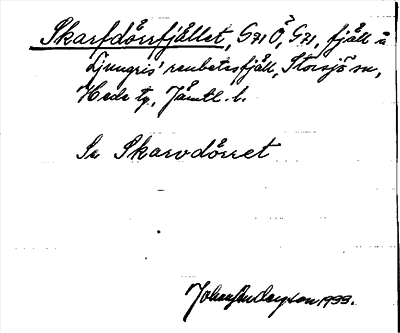 Skarfdörrfjället, G21 Ö, G21, fjäll å
Ljungris' renbetesfjäll, Storsjö sn,
Hede tg, Jämtl. l.
Se Skarvdörret
Johan Anderzson 1933.